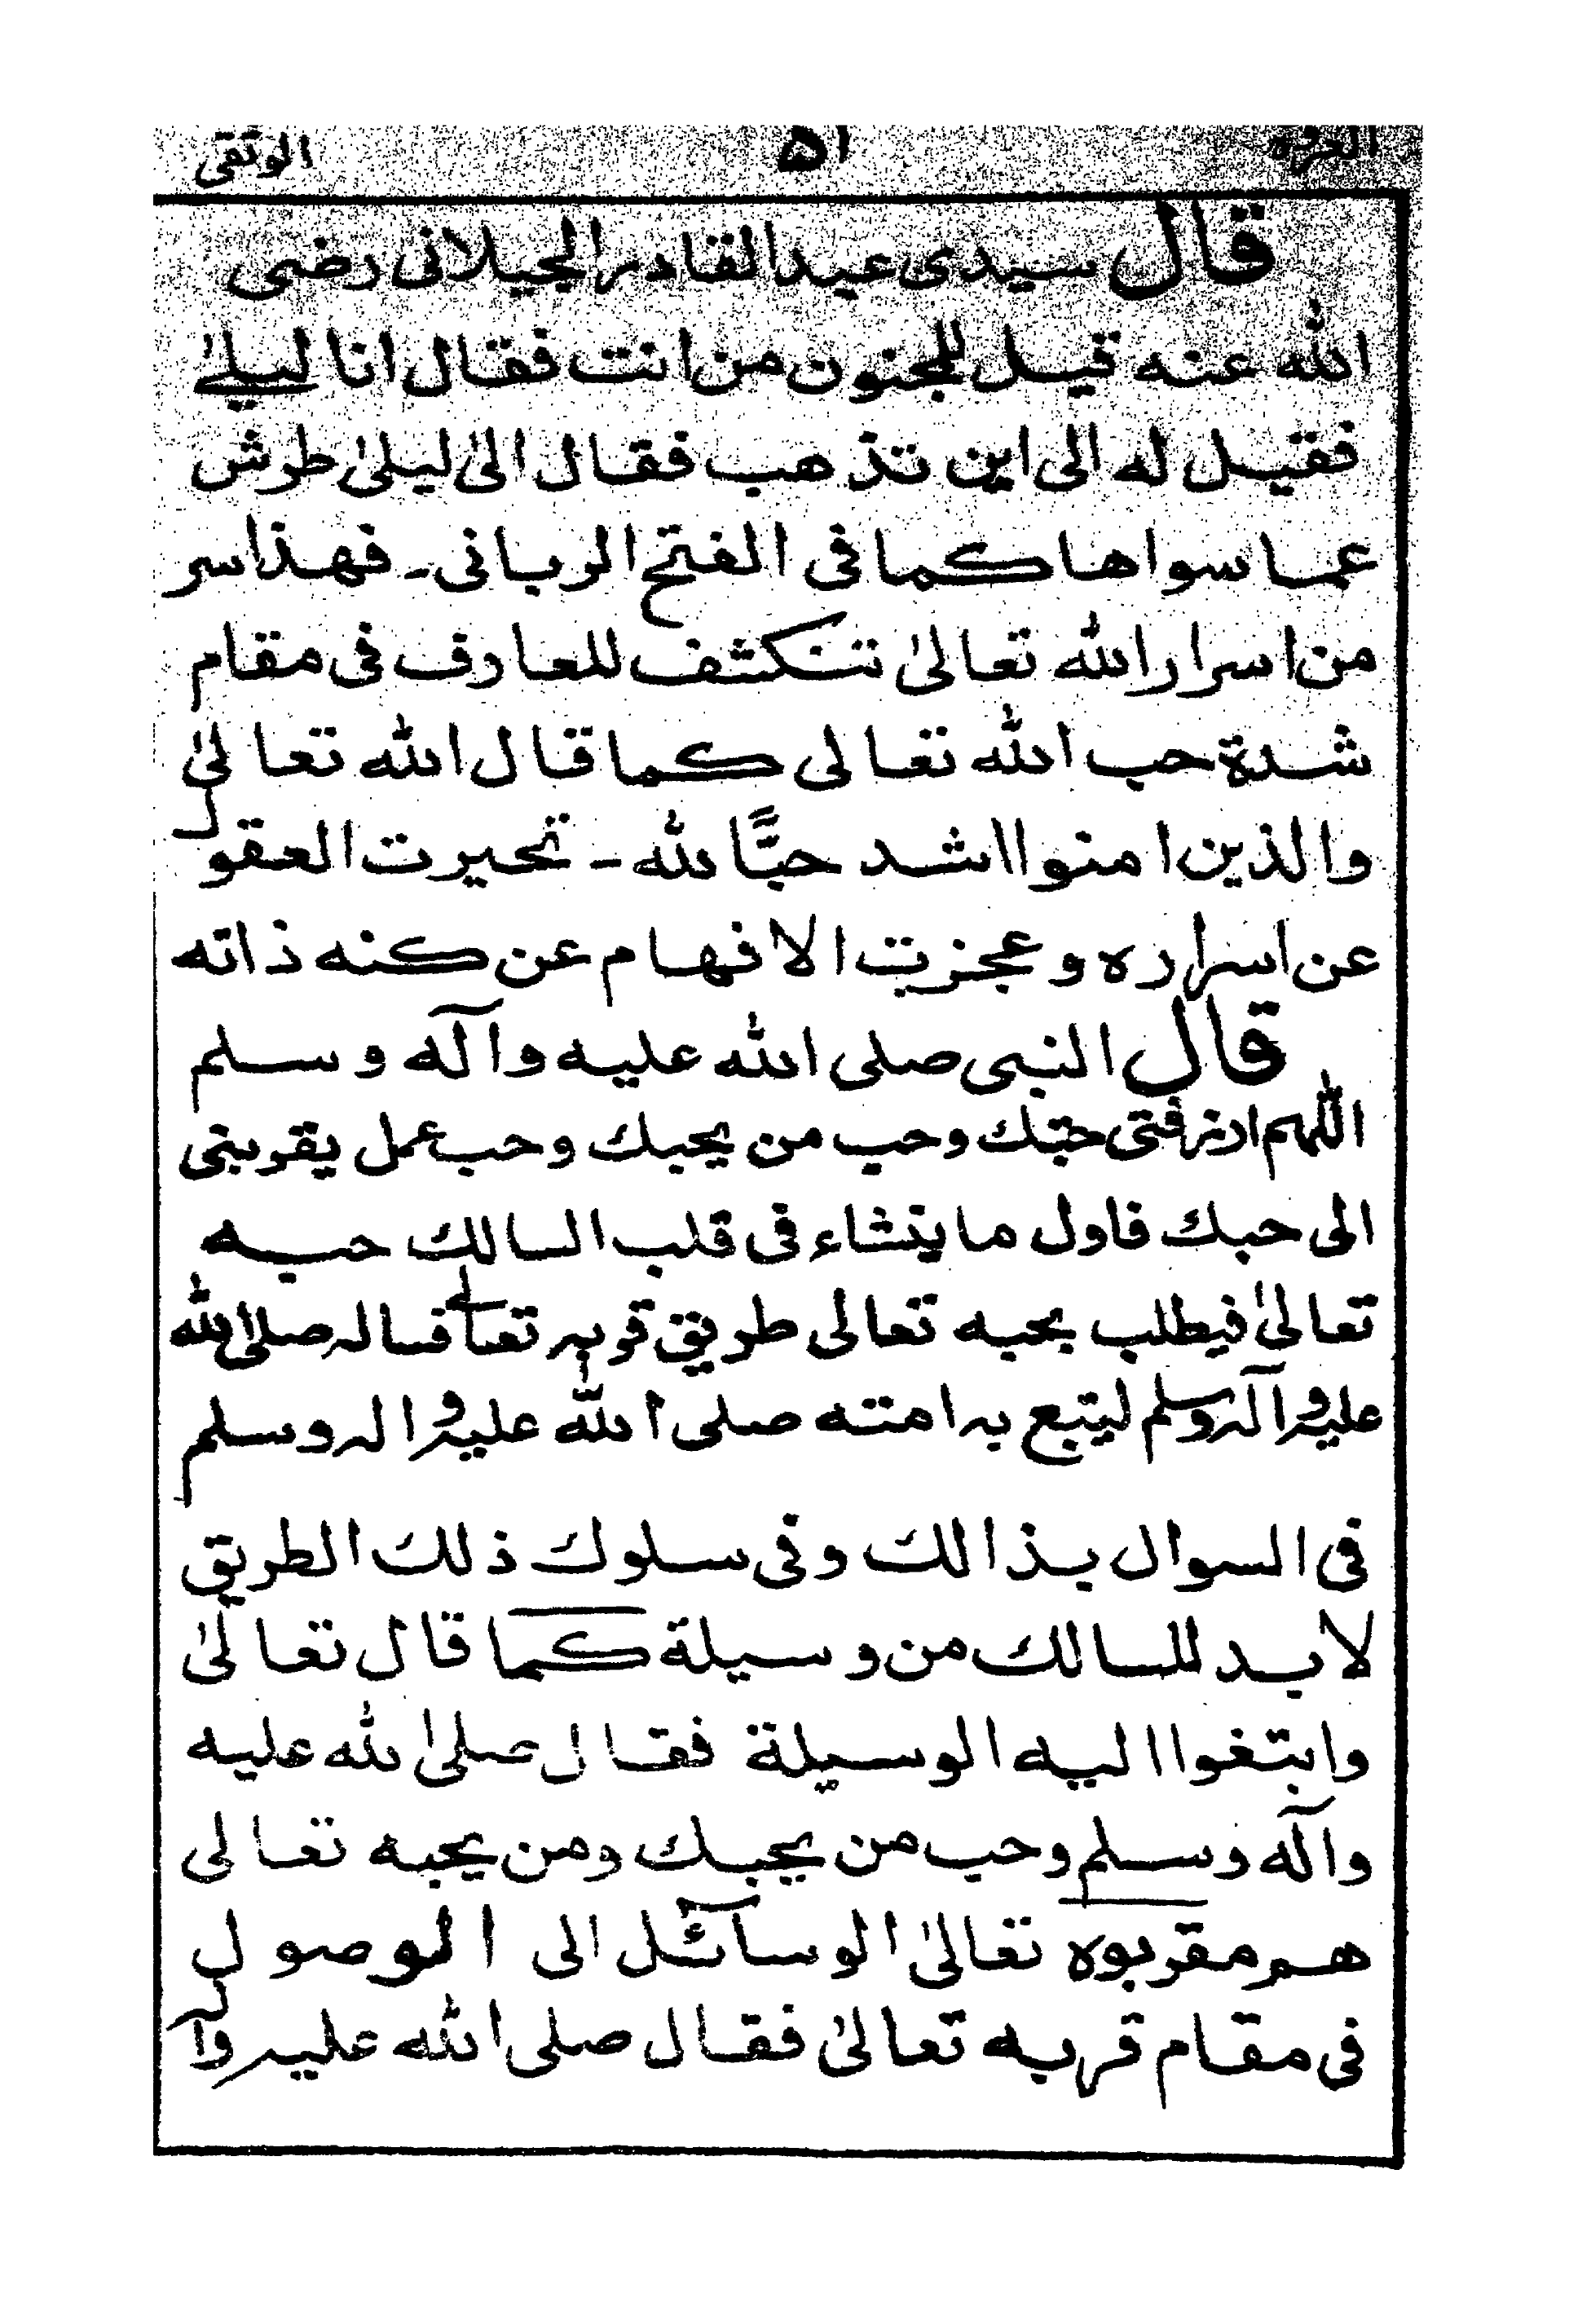 العروه ۵۱ الوثقى
قال سيدى عبدالقادر الجيلانى رضى
الله عنه قيل للمجنون من انت فقال انا ليلے
فقيل له الى اين تذهب فقال الىٰ ليلىٰ طرش
عما سواها كما فى الفتح الربانى۔ فهذا سر
من اسرار الله تعالىٰ تنكشف للعارف فى مقام
شدة حب الله تعالى كما قال الله تعالىٰ
والذين امنوا اشد حبًّا لله ـ تحيرت العقول
عن اسراره وعجزت الافهام عن كنه ذاته
قال النبى صلى الله عليه وآله وسلم
اللهم ارزقنى حبك وحب من يحبك وحب عمل يقربنى
الى حبك فاول ما ينشاء فى قلب السالك حبه
تعالىٰ فيطلب بحبه تعالى طريق قربه تعالے فساله صلى الله
عليه وآله وسلم ليتبع به امته صلى الله عليه واله وسلم
فى السوال بذالك وفى سلوك ذلك الطريق
لابد للسالك من وسيلة كما قال تعالىٰ
وابتغوا اليه الوسيلة فقال صلىٰ لله عليه
وآله وسلم وحب من يحبك ومن يحبه تعالى
هم مقربوه تعالىٰ الوسآئل الى الوصول
فى مقام قربه تعالىٰ فقال صلى الله عليه وآله